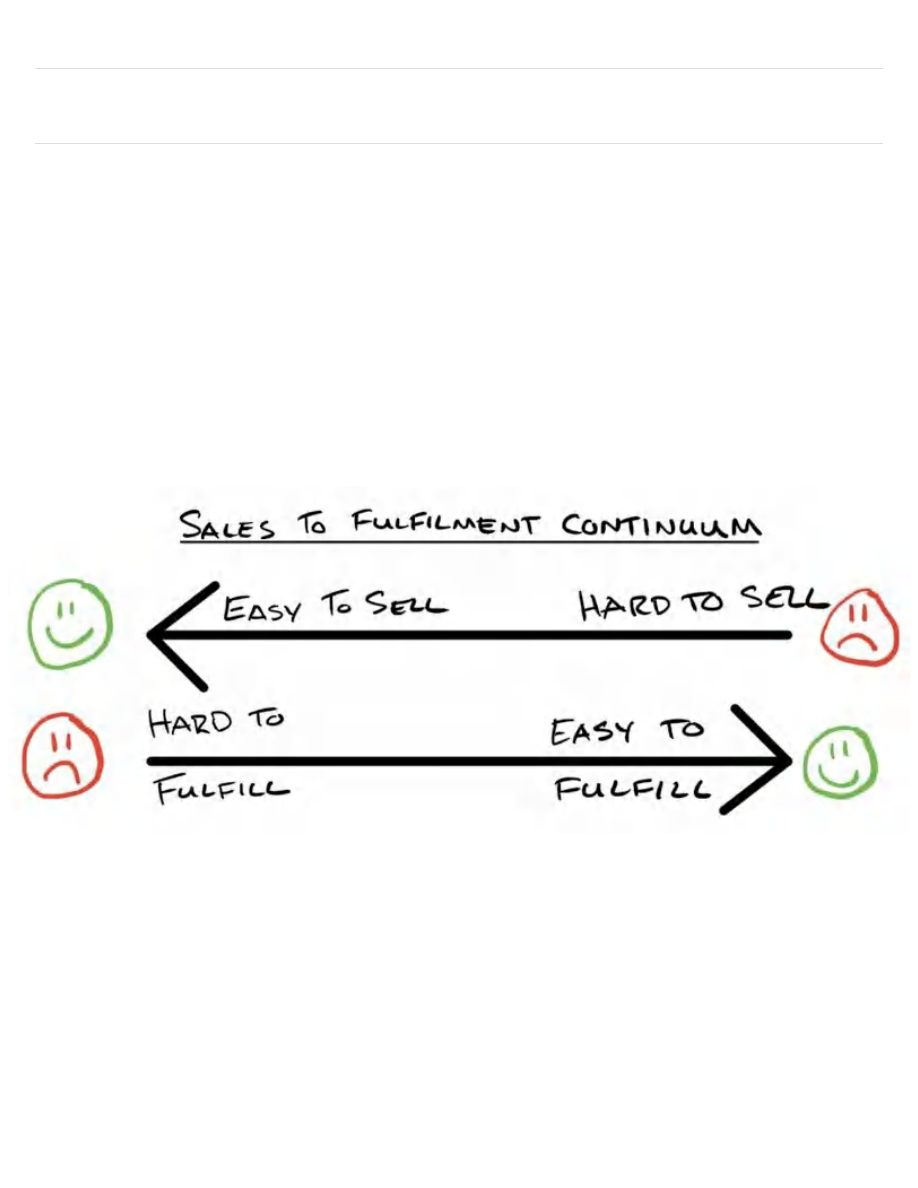 SALES TO FULFILMENT CONTINUUM
EASY TO SELL HARD TO SELL
HARD TO EASY TO
FULFILL FULFILL